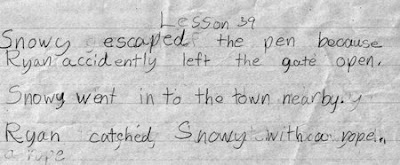 Lesson 39
Snowy escaped the pen because
Ryan accidently left the gate open.
Snowy went in to the town nearby.
Ryan catched Snowy with a rope.
a rope